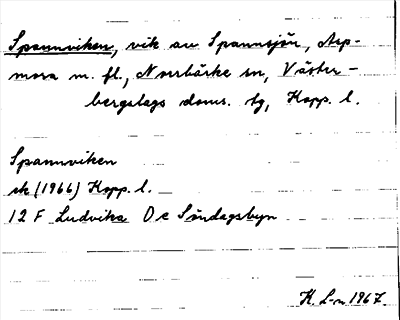 Spannviken, vik av Spannsjön, Asp-
mora m. fl., Norrbärke sn, Väster-
bergslags doms. tg, Kopp. l.
Spannviken
ek (1966) Kopp. l.
12 F Ludvika 0 e Söndagsbyn
K. L-n 1967.